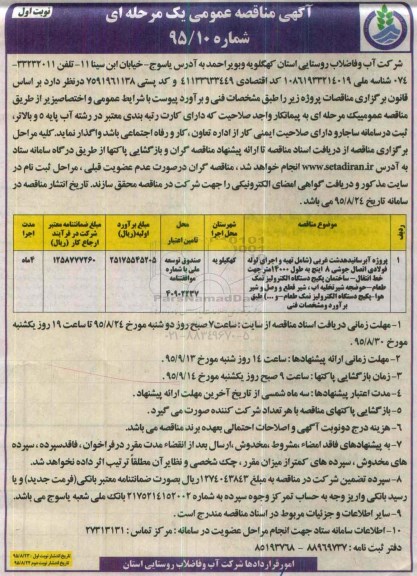 نوبت اول
آگهی مناقصه عمومی یک مرحله ای
شماره ۹۵/۱۰
شرکت آب وفاضلاب روستایی استان کهگلویه وبویراحمد به آدرس یاسوج-خیابان ابن سینا ۱۱-تلفن ۳۳۲۲۲۰۱۱-
۰۷۴ شناسه ملی ۱۰۸۶۱۹۳۳۲۱۴۰۱۹ کد اقتصادی ۴۱۱۳۳۶۳۳۴۴۹ و کد پستی ۷۵۹۱۹۶۱۱۳۸ درنظر دارد بر اساس
قانون برگزاری مناقصات پروژه زیر را طبق مشخصات فنی و برآورد پیوست با شرایط عمومی و اختصاصی‌زیر از طریق
مناقصه عمومی‌یک مرحله ای به پیمانکار واجد صلاحیت که دارای کارت رتبه بندی معتبر در رشته آب پایه ۵ و بالاتر،
ثبت درسامانه ساجارو دارای صلاحیت ایمنی کار از اداره تعاون ،کار و رفاه اجتماعی باشد واگذار نماید. کلیه مراحل
برگزاری مناقصه از دریافت اسناد مناقصه تا ارائه پیشنهاد مناقصه گران و بازگشایی پاکتها از طریق درگاه سامانه ستاد
به آدرس www.setadiran.ir انجام خواهد شد ، مناقصه گران درصورت عدم عضویت قبلی ، مراحل ثبت نام در
سایت مذکور و دریافت گواهی امضای الکترونیکی را جهت شرکت در مناقصه محقق سازند. تاریخ انتشار مناقصه در
سامانه تاریخ ۹۵/۸/۲۴ می باشد.
ردیف | موضوع مناقصه | شهرستان محل اجرا | محل تامین اعتبار | مبلغ برآورد اولیه(ریال) | مبلغ ضمانتنامه معتبر شرکت در فرآیند ارجاع کار (ریال) | مدت اجرا
۱ | پروژه آبرسانیدهدشت غربی (شامل تهیه و اجرای لوله فولادی اتصال جوشی ۸ اینچ به طول ۱۲۰۰۰متر جهت خط انتقال- ساختمان پکیج دستگاه الکترولیز نمک طعام-حوضچه شیرتخلیه اب ، شیر قطع و وصل و شیر هوا-پکیج دستگاه الکترولیز نمک طعام-و...) طبق برآورد ومشخصات فنی | کهکیلویه | صندوق توسعه ملی با شماره طرح ۴۰۹۰۲۲۳۷ | ۲۵۱۷۵۵۴۵۲۰۵ | ۱۲۵۸۷۷۷۲۶۰ | ۴ماه
۱- مهلت زمانی دریافت اسناد مناقصه از سایت : ساعت۷ صبح روز دو شنبه مورخ ۹۵/۸/۲۴ تا ساعت ۱۹ روز یکشنبه
مورخ ۹۵/۸/۳۰.
۲- مهلت زمانی ارائه پیشنهادها : ساعت ۱۴ روز شنبه مورخ ۹۵/۹/۱۳.
۳- زمان بازگشایی پاکتها : ساعت ۹ صبح روز یکشنبه مورخ ۹۵/۹/۱۴.
۴- مدت اعتبار پیشنهادها : سه ماه شمسی از تاریخ آخرین مهلت ارائه پیشنهاد .
۵- بازگشایی پاکتهای مناقصه با هر تعداد شرکت کننده صورت می گیرد .
۶- هزینه درج دونوبت آگهی و اصلاحات احتمالی بعهده برنده مناقصه می باشد.
۷- به پیشنهادهای فاقد امضاء ،مشروط ،مخدوش ،ارسال بعد از انقضاء مدت مقرر درفراخوان ، فاقدسپرده ، سپرده
های مخدوش ، سپرده های کمتراز میزان مقرر ، چک شخصی و نظایر آن مطلقاً ترتیب اثر داده نخواهد شد.
۸- سپرده تضمین شرکت در مناقصه به مبلغ ۱۲۷۴۰۴۳۸۴۳ریال بصورت ضمانتنامه معتبر بانکی (فرمت جدید) و یا
رسید بانکی واریز وجه به حساب تمرکز وجوه سپرده به شماره ۲۱۷۵۲۱۴۱۵۲۰۰۲ بانک ملی شعبه یاسوج می باشد.
۹- سایر اطلاعات و جزئیات مربوط در اسناد مناقصه مندرج است .
۱۰- اطلاعات سامانه ستاد جهت انجام مراحل عضویت در سامانه : مرکز تماس : ۲۷۳۱۳۱۳۱
دفتر ثبت نامه : ۸۸۹۶۹۷۳۷ - ۸۵۱۹۳۷۶۸
امورقراردادها شرکت آب وفاضلاب روستایی استان